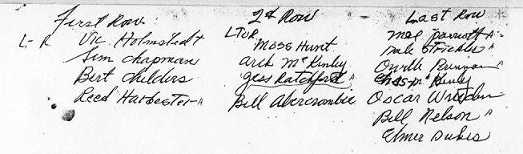 First Row:
L-R Vic Holmstedt
Jim Chapman
Bert Childers
Reed Harbester "
2d Row
L TO R
Moss Hunt
Arch McKinly
Jess Ratchford
Bill Abercrombie
Last Row
Mel Parriott "
Dale Strickler
Orville
Chas. McKinly
Oscar
Bill Nelson "
Elmer Dukes